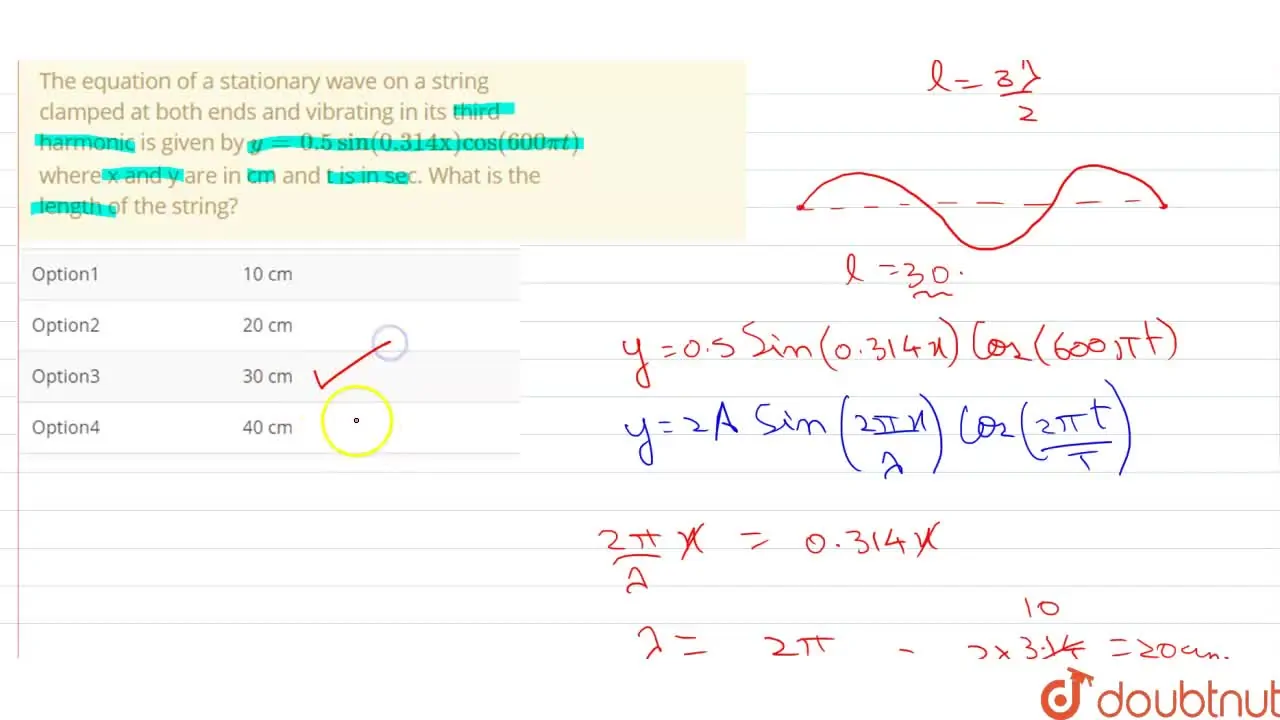 The equation of a stationary wave on a string
clamped at both ends and vibrating in its third
harmonic is given by y = 0.5 sin(0.314x)cos(600πt)
where x and y are in cm and t is in sec. What is the
length of the string?
Option1 10 cm
Option2 20 cm
Option3 30 cm
Option4 40 cm
l = 3λ/2
l = 30.
y = 0.5 Sin(0.314x) Cos(600πt)
y = 2A Sin(2πx/λ) Cos(2πt/T)
2π/λ x = 0.314x
10
λ = 2π - 2×3.14 = 20cm.
doubtnut